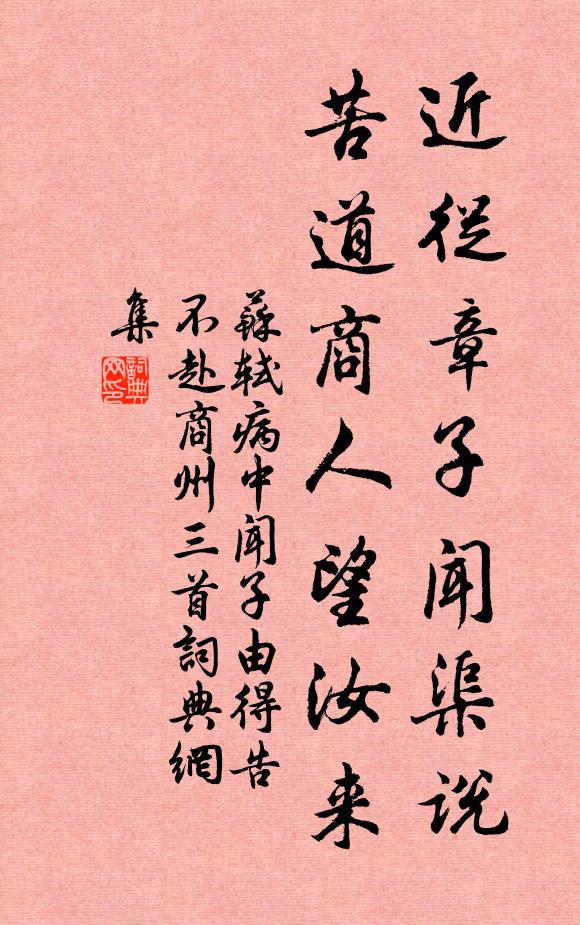 近從章子聞渠説
苦道商人望汝来
蘇軾病中聞子由得告
不赴商州三首詞典網
集
詞典
网印